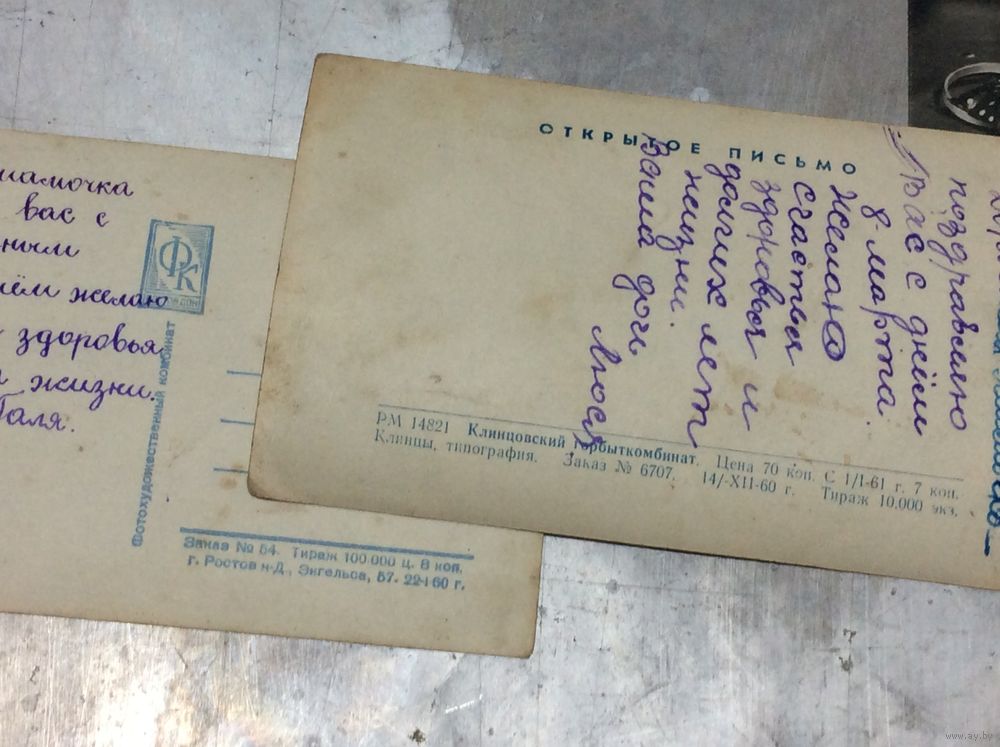 мамочка
вас с
ным
нём желаю
здоровья
жизни.
Галя.
ФК
Фотохудожественный комбинат
Заказ № 54. Тираж 100 000 ц. 8 коп.
г. Ростов н-Д., Энгельса, 57. 22-I 60 г.
ОТКРЫТОЕ ПИСЬМО
поздравляю
Вас с днём
8-марта.
Желаю
счастья
здоровья и
долгих лет
жизни.
Ваша дочь
Люся
РМ 14821 Клинцовский горбыткомбинат. Цена 70 коп. С 1/I-61 г. 7 коп.
Клинцы, типография. Заказ № 6707. 14/-XII-60 г. Тираж 10.000 экз.
www.ay.by